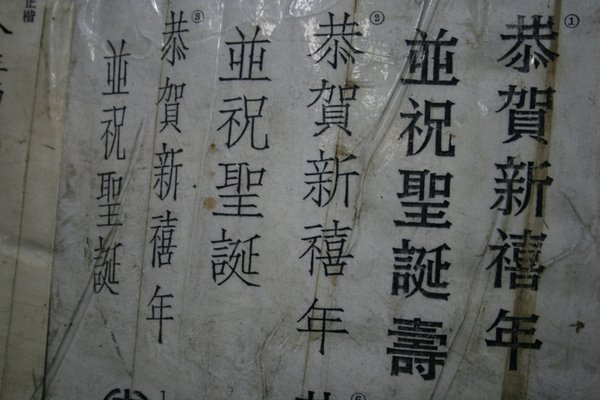 ①
恭賀新禧年
並祝聖誕壽
②
恭賀新禧年
並祝聖誕
③
恭賀新禧年
並祝聖誕
正楷
⑥